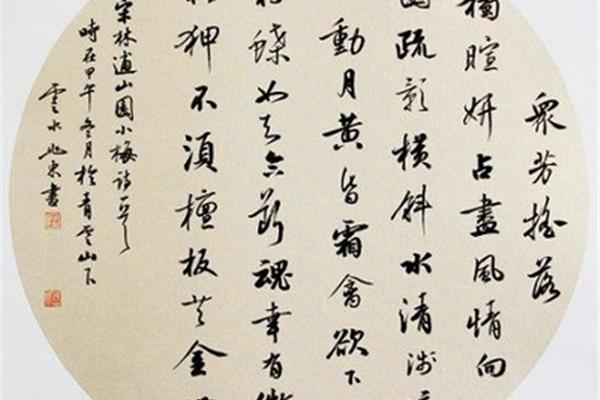 眾芳搖落
獨暄妍占盡風情向
園疏影橫斜水清淺
動月黃昏霜禽欲下
粉蝶如知合斷魂幸有微
狎不須檀板共金
宋林逋山園小梅詩一首
時在甲午冬月於青雲山下
雲水東書